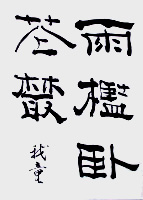 雨檻臥
花叢